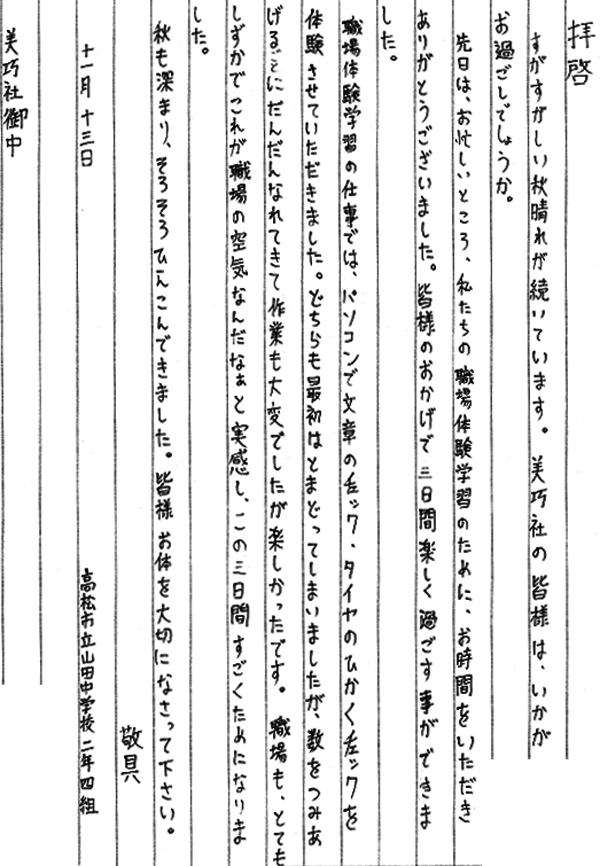 拝啓
すがすがしい秋晴れが続いています。美巧社の皆様は、いかが
お過ごしでしょうか。
先日は、お忙しいところ、私たちの職場体験学習のために、お時間をいただき
ありがとうございました。皆様のおかげで三日間楽しく過ごす事ができま
した。
職場体験学習の仕事では、パソコンで文章のチェック・タイヤのひかくチェックを
体験させていただきました。どちらも最初はとまどってしまいましたが、数をつみあ
げるごとにだんだんなれてきて作業も大変でしたが楽しかったです。職場も、とても
しずかでこれが職場の空気なんだなぁと実感し、この三日間すごくためになりま
した。
秋も深まり、そろそろひえこんできました。皆様お体を大切になさって下さい。
敬具
十一月十三日
高松市立山田中学校二年四組
美巧社御中